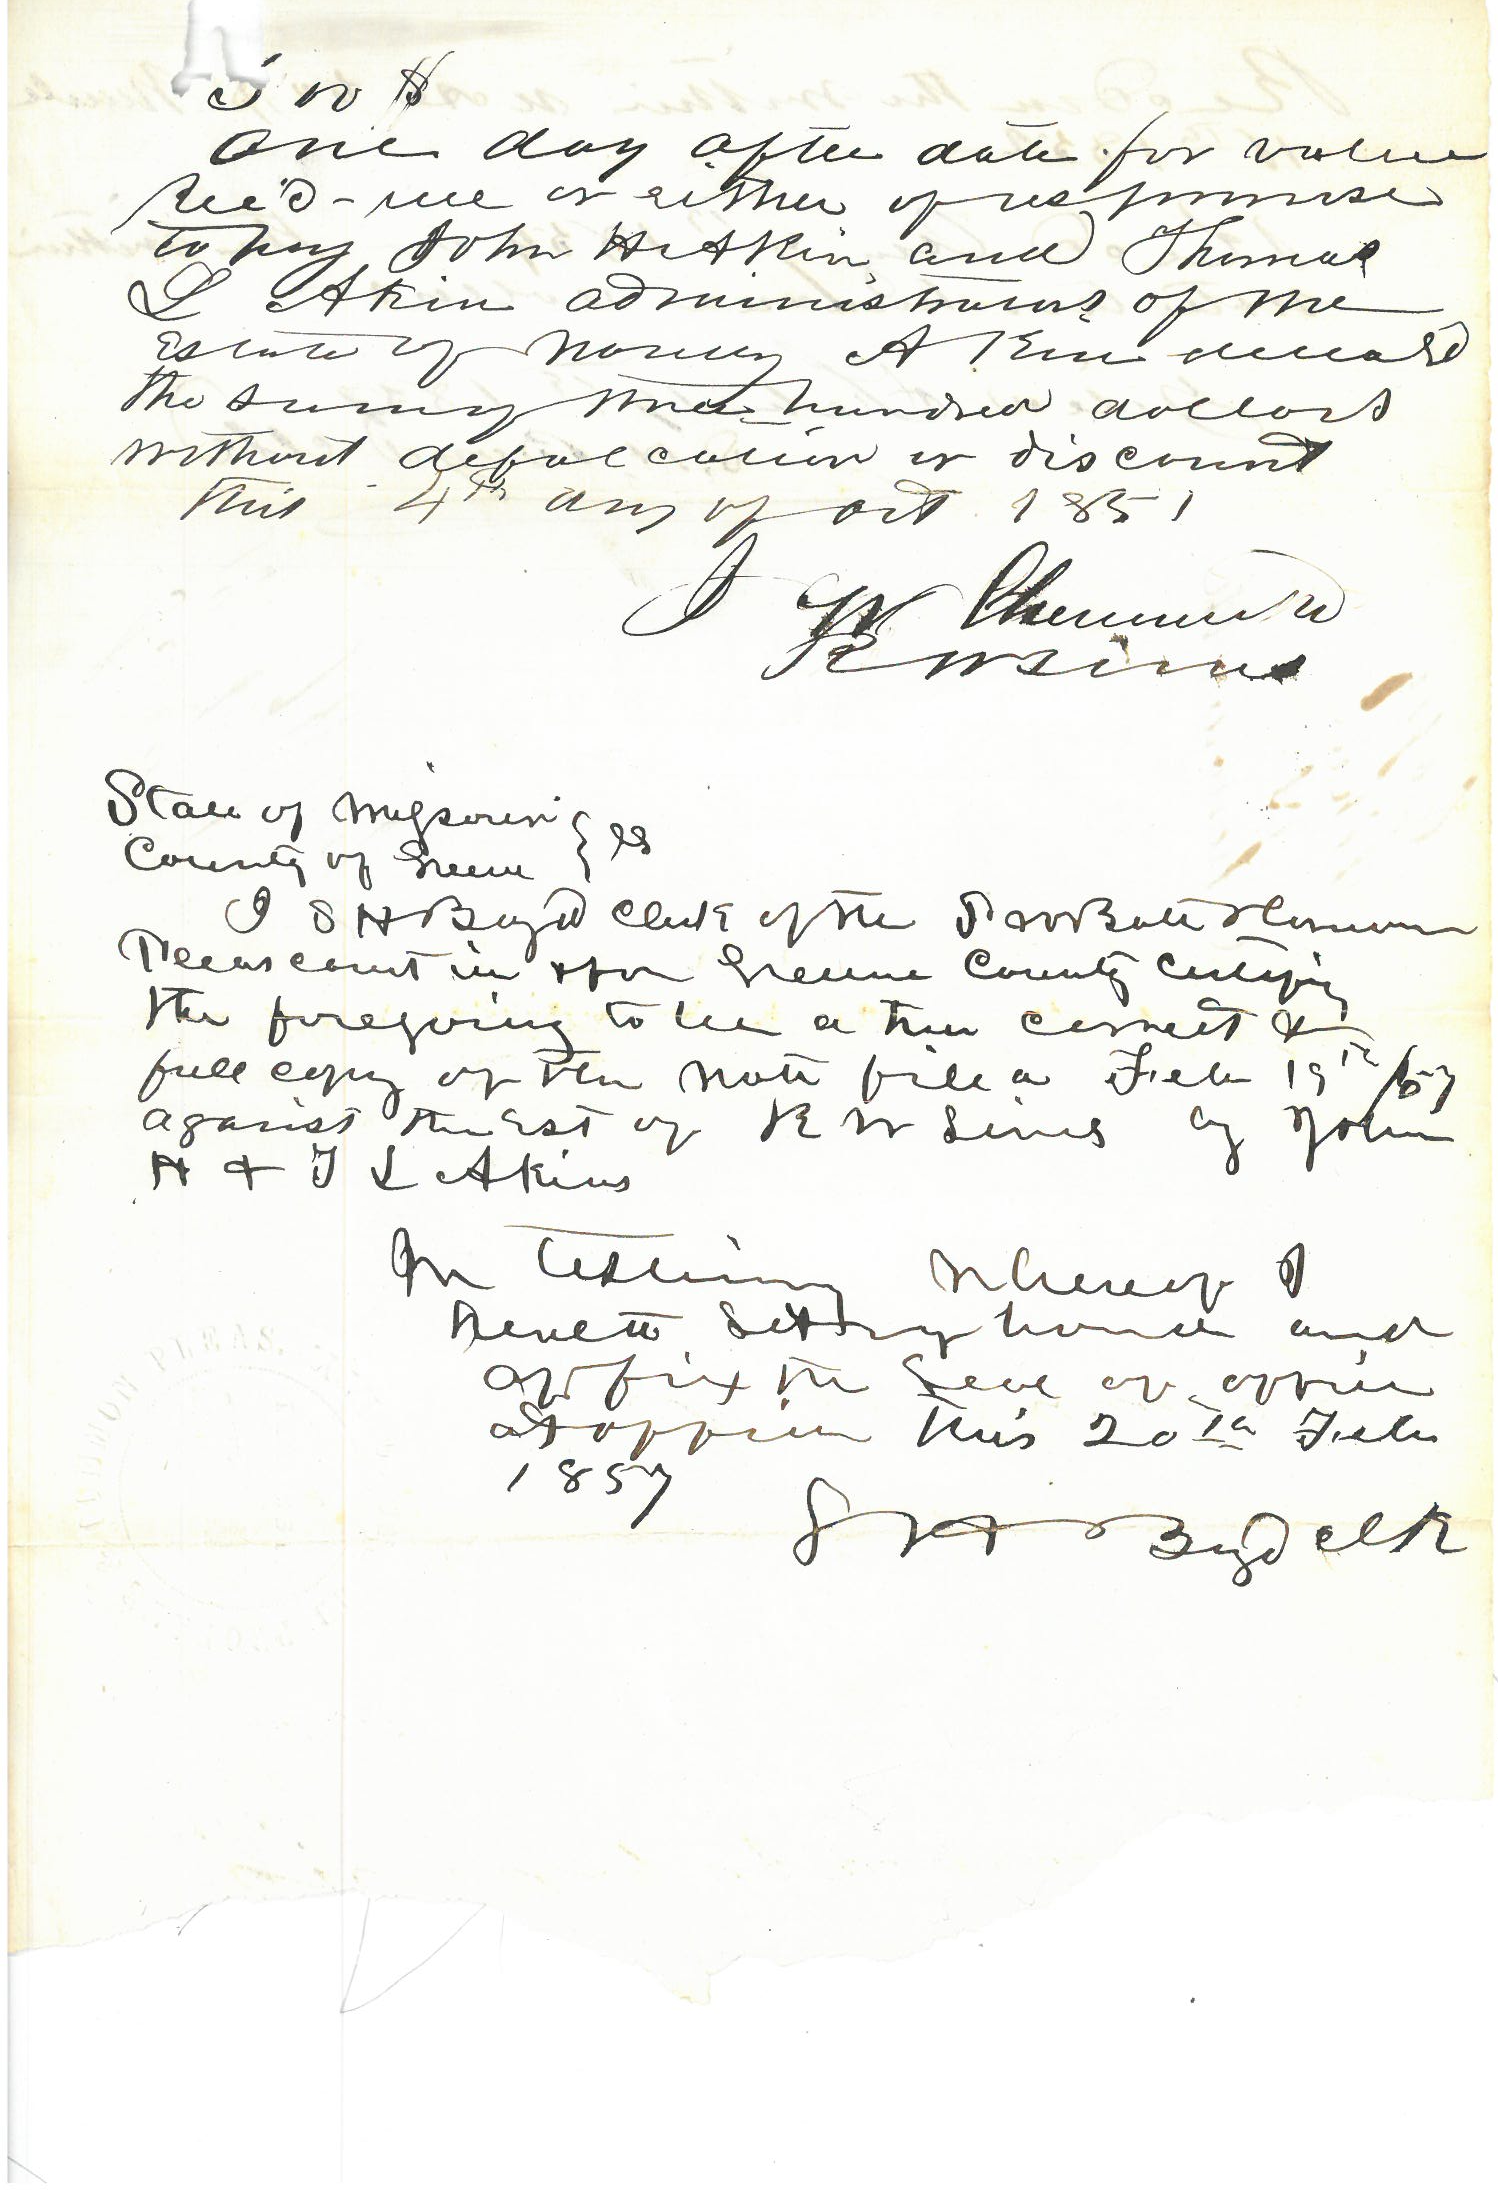 One day after date for value
Rec'd - we or either of us promise
to pay John H Akin and Thomas
L Akin administrators of the
Estate of Nancy Akin deceasd
the sum of three hundred dollars
without defalcation or discount
this 4th day of oct 1851
J W
R W Sims
State of Missouri } ss
County of Greene
I S H Boyd Clerk of the Probate & Common
Pleas court in & for Greene County Certify
the foregoing to be a true correct &
full copy of the note filed Feb 19th /57
against the Est of R W Sims by John
H & T L Akins
In testimony whereof I
hereto set my hand and
affix the Seal of office
at office this 20th Feb
1857
S H Boyd clk